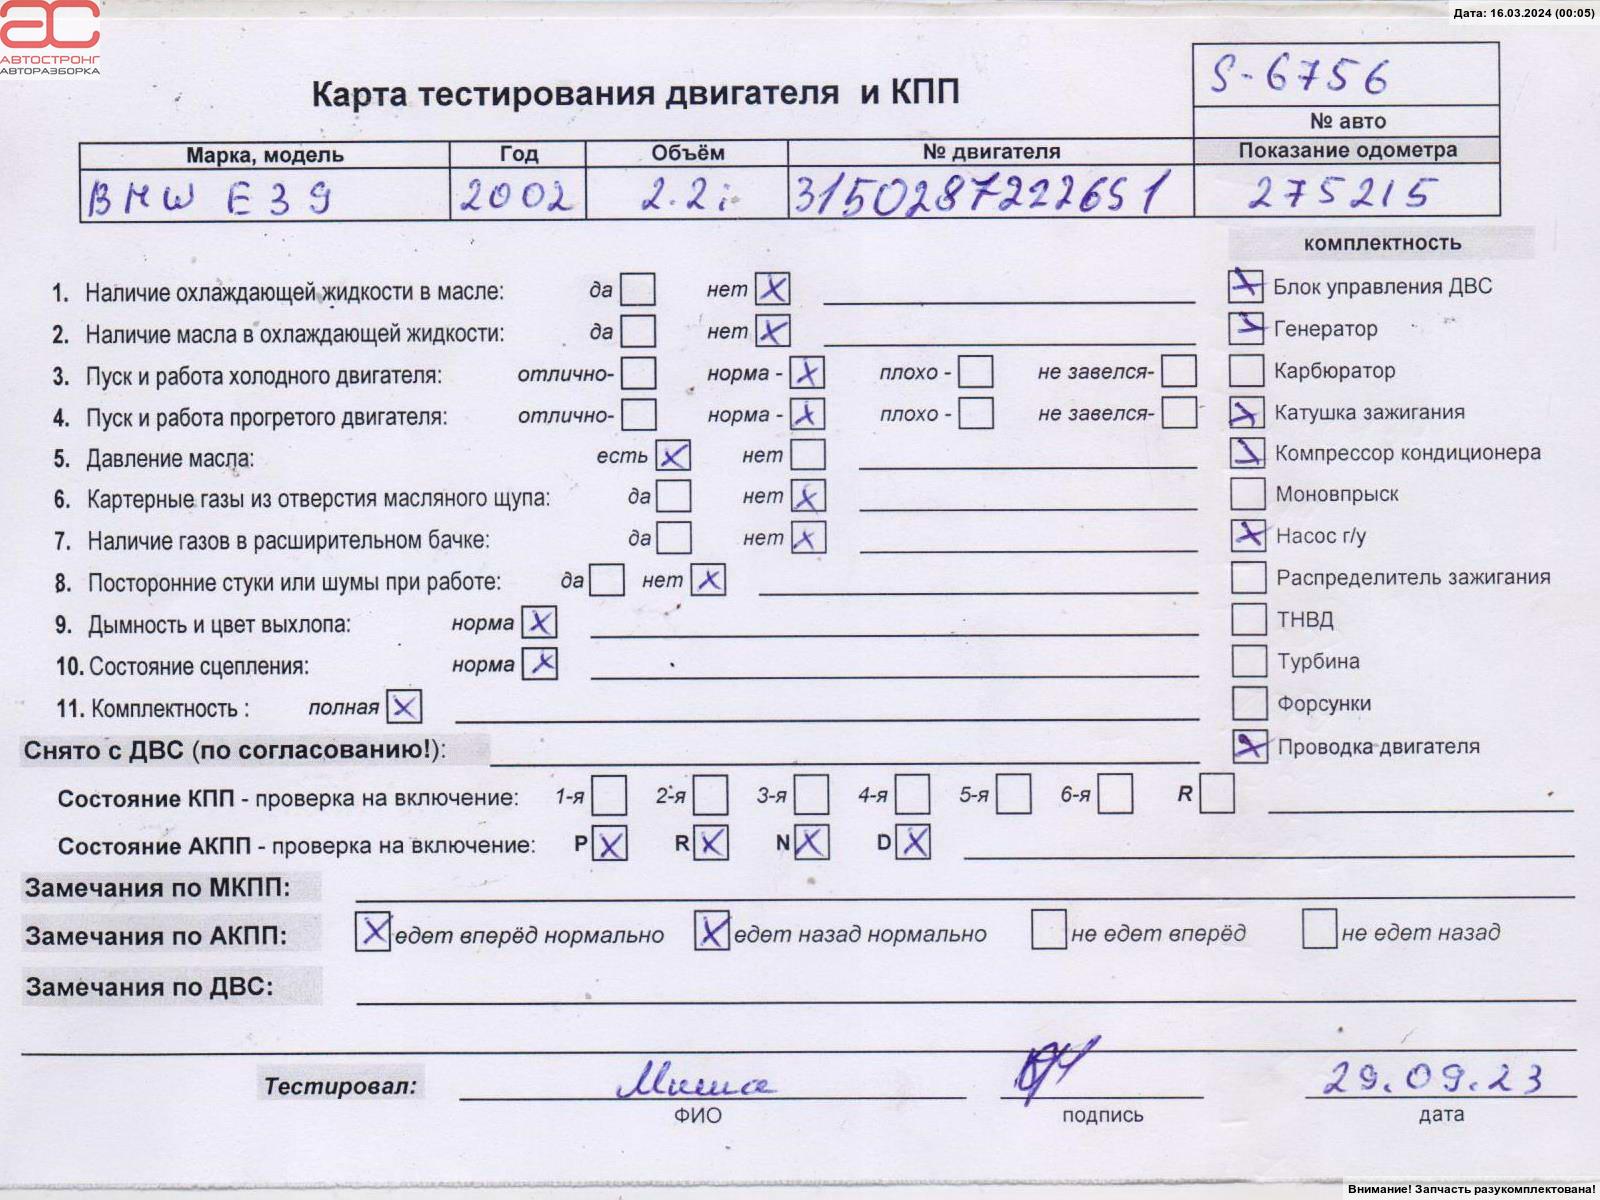 Дата: 16.03.2024 (00:05)
АВТОСТРОНГ
АВТОРАЗБОРКА
Карта тестирования двигателя и КПП
S-6756
№ авто
Марка, модель Год Объём № двигателя Показание одометра
BMW E39 2002 2.2i 3150287222651 275215
комплектность
1. Наличие охлаждающей жидкости в масле: да нет
Блок управления ДВС
2. Наличие масла в охлаждающей жидкости: да нет
Генератор
3. Пуск и работа холодного двигателя: отлично- норма - плохо - не завелся-
Карбюратор
4. Пуск и работа прогретого двигателя: отлично- норма - плохо - не завелся-
Катушка зажигания
5. Давление масла: есть нет
Компрессор кондиционера
6. Картерные газы из отверстия масляного щупа: да нет
Моновпрыск
7. Наличие газов в расширительном бачке: да нет
Насос г/у
8. Посторонние стуки или шумы при работе: да нет
Распределитель зажигания
9. Дымность и цвет выхлопа: норма
ТНВД
10. Состояние сцепления: норма
Турбина
11. Комплектность : полная
Форсунки
Снято с ДВС (по согласованию!):
Проводка двигателя
Состояние КПП - проверка на включение: 1-я 2-я 3-я 4-я 5-я 6-я R
Состояние АКПП - проверка на включение: P R N D
Замечания по МКПП:
Замечания по АКПП: едет вперёд нормально едет назад нормально не едет вперёд не едет назад
Замечания по ДВС:
Тестировал: Миша 29.09.23
ФИО подпись дата
Внимание! Запчасть разукомплектована!